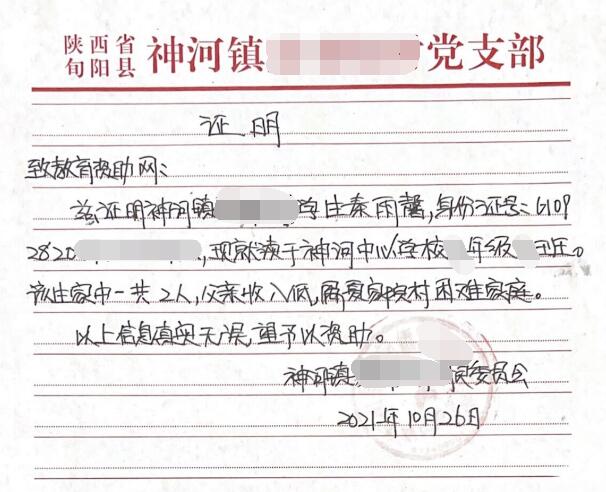 陕西省
旬阳县 神河镇 党支部
证明
致教育资助网：
兹证明神河镇 学生秦雨馨，身份证号：6109
2820 ，现就读于神河中心学校 年级 班。
该生家中一共2人，父亲收入低，属 家院村困难家庭。
以上信息真实无误，望予以资助。
神河镇 民委员会
2021年10月26日